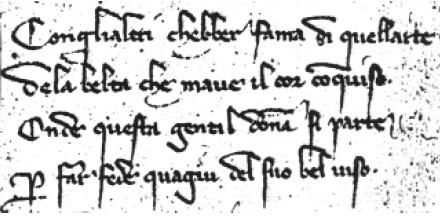 Con glialtri chebber fama di quellarte
De la belta che mave il cor conquiso.
Onde questa gentil dona si parte
P far fede quagiu del suo bel viso.